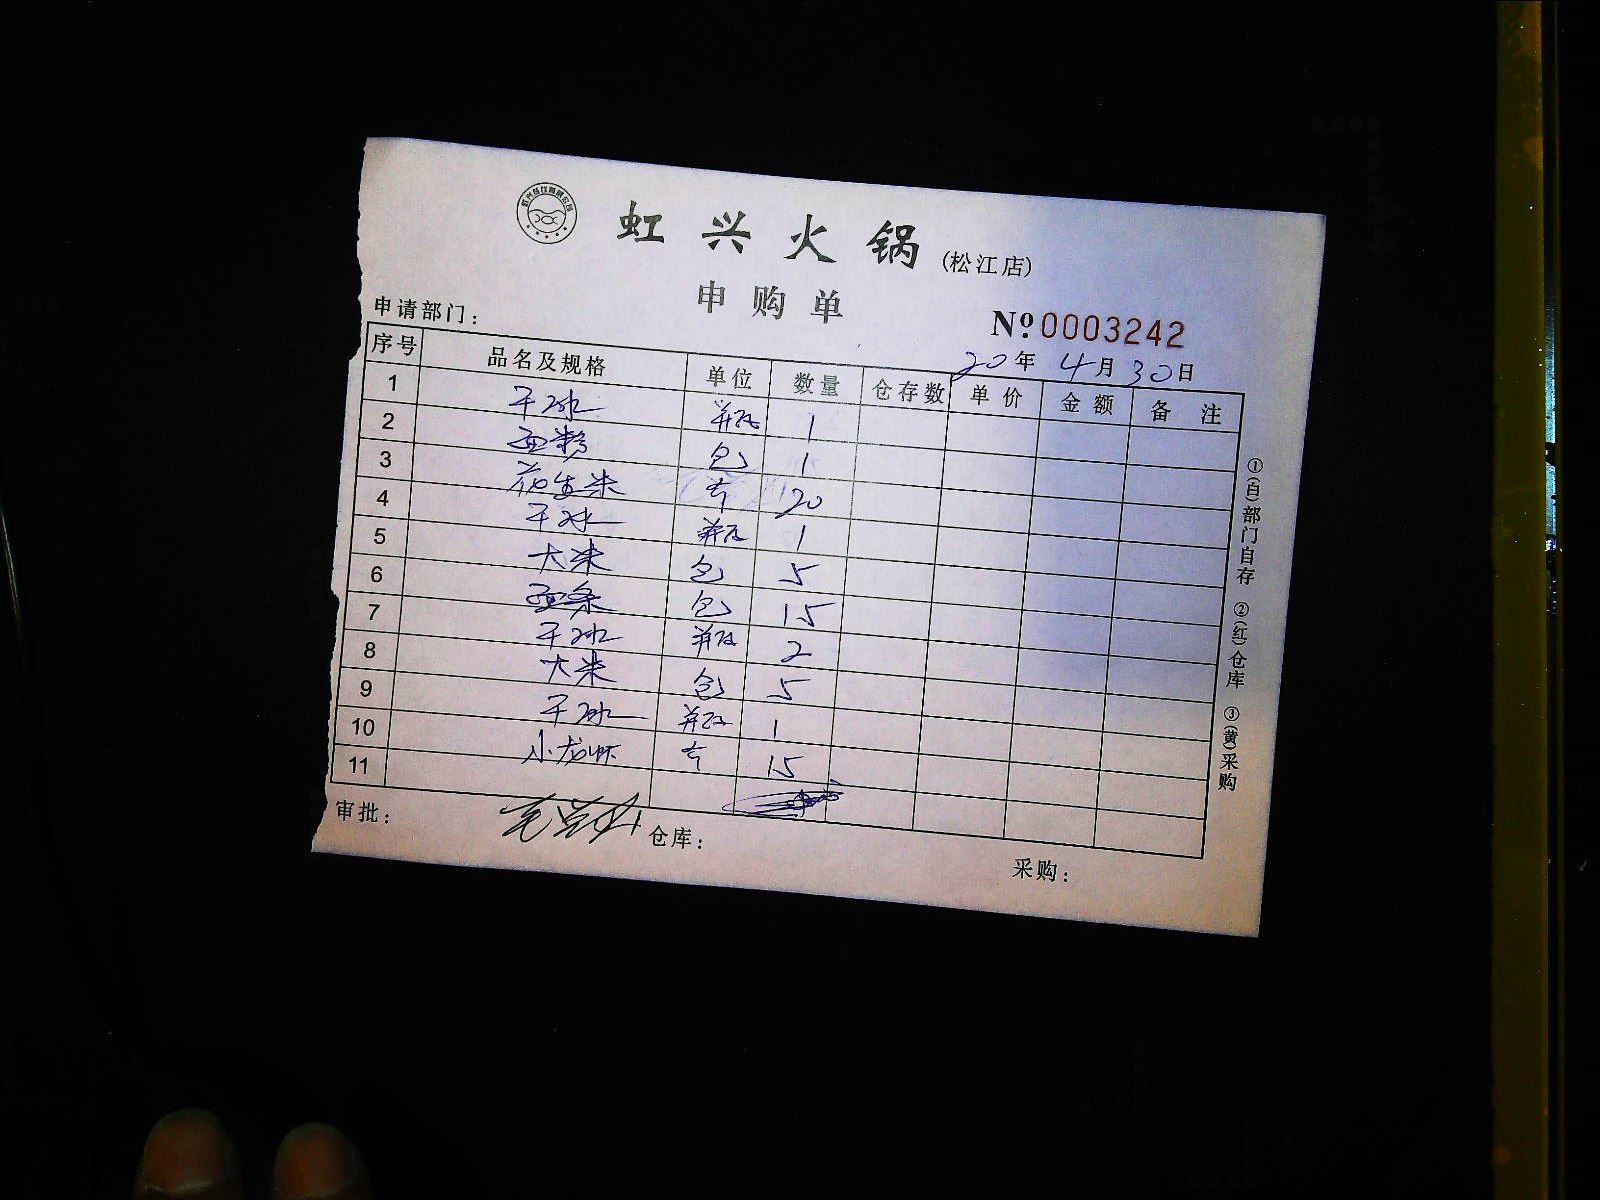 虹兴火锅(松江店)
申购单
申请部门:
№0003242
20年4月30日
序号 品名及规格 单位 数量 仓存数 单价 金额 备注
1 干冰 瓶 1
2 面粉 包 1
3 花生米 斤 20
4 干冰 瓶 1
5 大米 包 5
6 面条 包 15
7 干冰 瓶 2
8 大米 包 5
9 干冰 瓶 1
10 小龙虾 斤 15
11
审批:
仓库:
采购:
①(白)部门自存 ②(红)仓库 ③(黄)采购